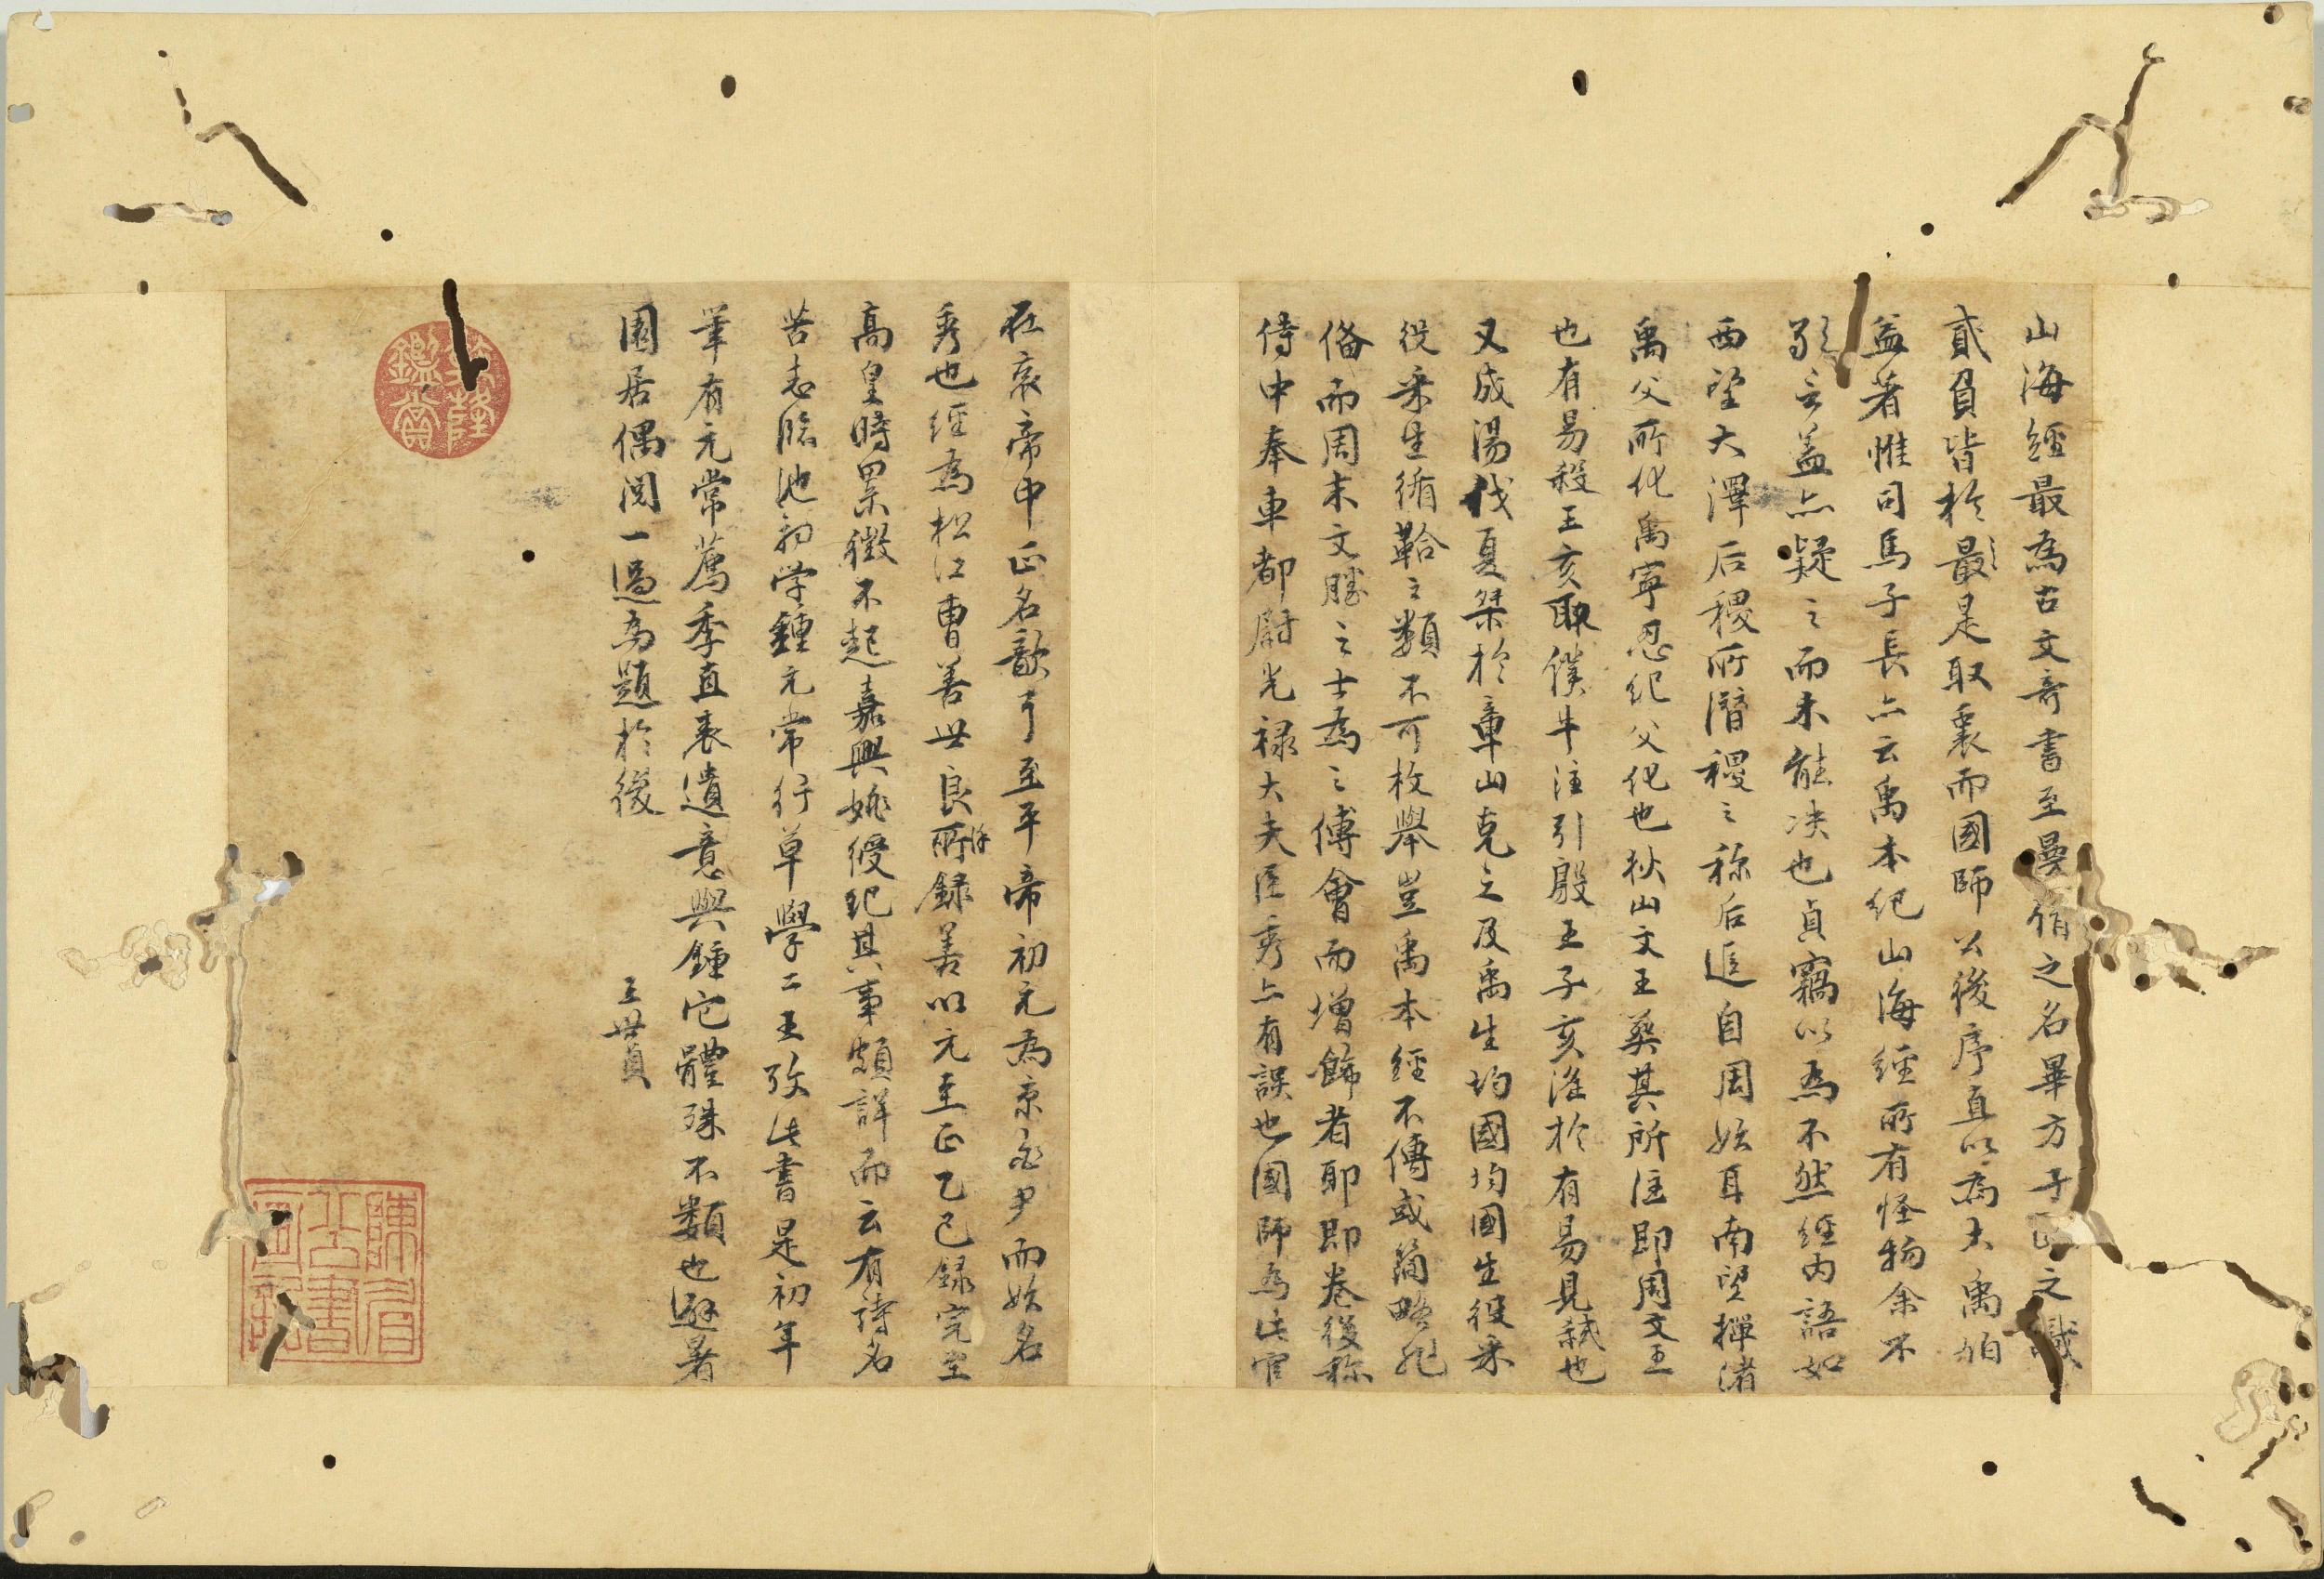 山海經最為古文奇書至曼倩之名畢方子政之識
貳負皆於最是取衷而國師公後序直以為大禹伯
益著惟司馬子長亦云禹本紀山海經所有怪物余不
敢言蓋亦疑之而未能决也貞竊以為不然經內語如
西望大澤后稷所潛稷之称后追自周始耳南望墠渚
禹父所化禹寧忍紀父化也狄山文王葬其所注即周文王
也有易殺王亥取僕牛注引殷王子亥淫於有易見弑也
又成湯伐夏桀於章山克之及禹生均國均國生役采
役采生循鞈之類不可枚舉豈禹本經不傳或簡略非
備而周末文勝之士為之傅會而增飾者耶即卷後称
侍中奉車都尉光禄大夫臣秀亦有誤也國師為此官
在哀帝中正名歆耳至平帝初元為京兆尹而始名
秀也經為松江曹善世良所録善以元至正乙巳録完至
高皇時累徵不起嘉興姚綬紀其事頗詳而云有詩名
苦志臨池初学鍾元常行草學二王致此書是初年
筆有元常薦季直表遺意與鍾它體殊不類也避暑
園居偶閱一過為題於後
王世貞
乾隆鑑賞